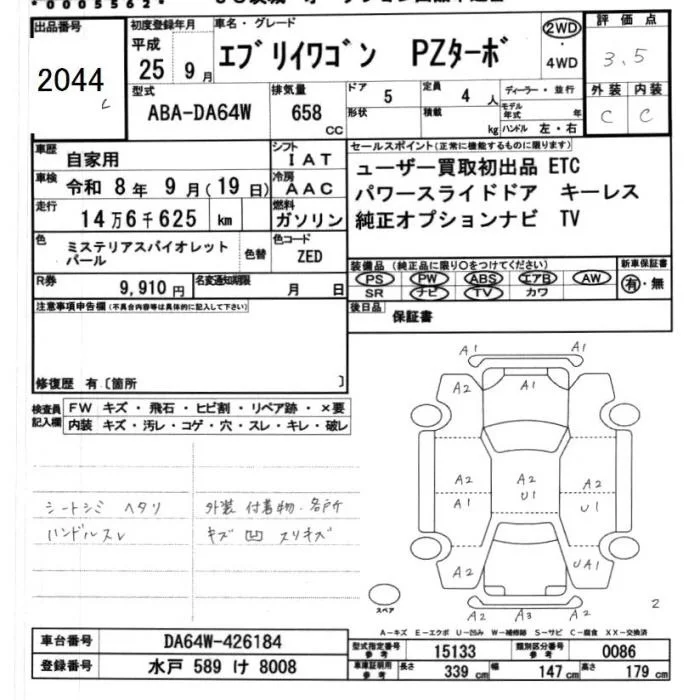 * 0 0 0 5 5 6 2 *
出品番号
2044
初度登録年月
平成
25 9 月
車名・グレード
エブリイワゴン PZターボ
2WD
・
4WD
評価点
3.5
外装 内装
C C
型式
ABA-DA64W
排気量
658
CC
ドア
5
形状
定員
4 人
積載
kg
ディーラー・並行
モデル年式 年
ハンドル 左・右
車歴
自家用
シフト
IAT
車検
令和 8 年 9 月(19 日)
冷房
AAC
走行
14 万 6 千 625 km
燃料
ガソリン
色
ミステリアスバイオレット
パール
色替
色コード
ZED
R券
9,910 円
名変通知期限
月 日
セールスポイント(正常に機能するものに限ります)
ユーザー買取初出品 ETC
パワースライドドア キーレス
純正オプションナビ TV
装備品(純正品に限り○をつけてください)
PS PW ABS エアB AW
SR ナビ TV カワ
新車保証書
有・無
後日品
保証書
注意事項申告欄(不具合内容等は具体的に記入して下さい)
修復歴 有〔箇所 〕
検査員
記入欄
FW キズ・飛石・ヒビ割・リペア跡・×要
内装 キズ・汚レ・コゲ・穴・スレ・キレ・破レ
シートシミ ヘタリ
ハンドルスレ
外装 付着物・各所
キズ 凹 スリキズ
A1 A1
A2 A1 A2
A2 A2 A2
A1 U1 U1
A2 UA1
A2 A3 A2
スペア
2
A-キズ E-エクボ U-凹み W-補修跡 S-サビ C-腐食 XX-交換済
車台番号
DA64W-426184
登録番号
水戸 589 け 8008
型式指定番号
参考
15133
類別区分番号
参考
0086
車庫証明用
参考
長さ 339 cm 幅 147 cm 高さ 179 cm